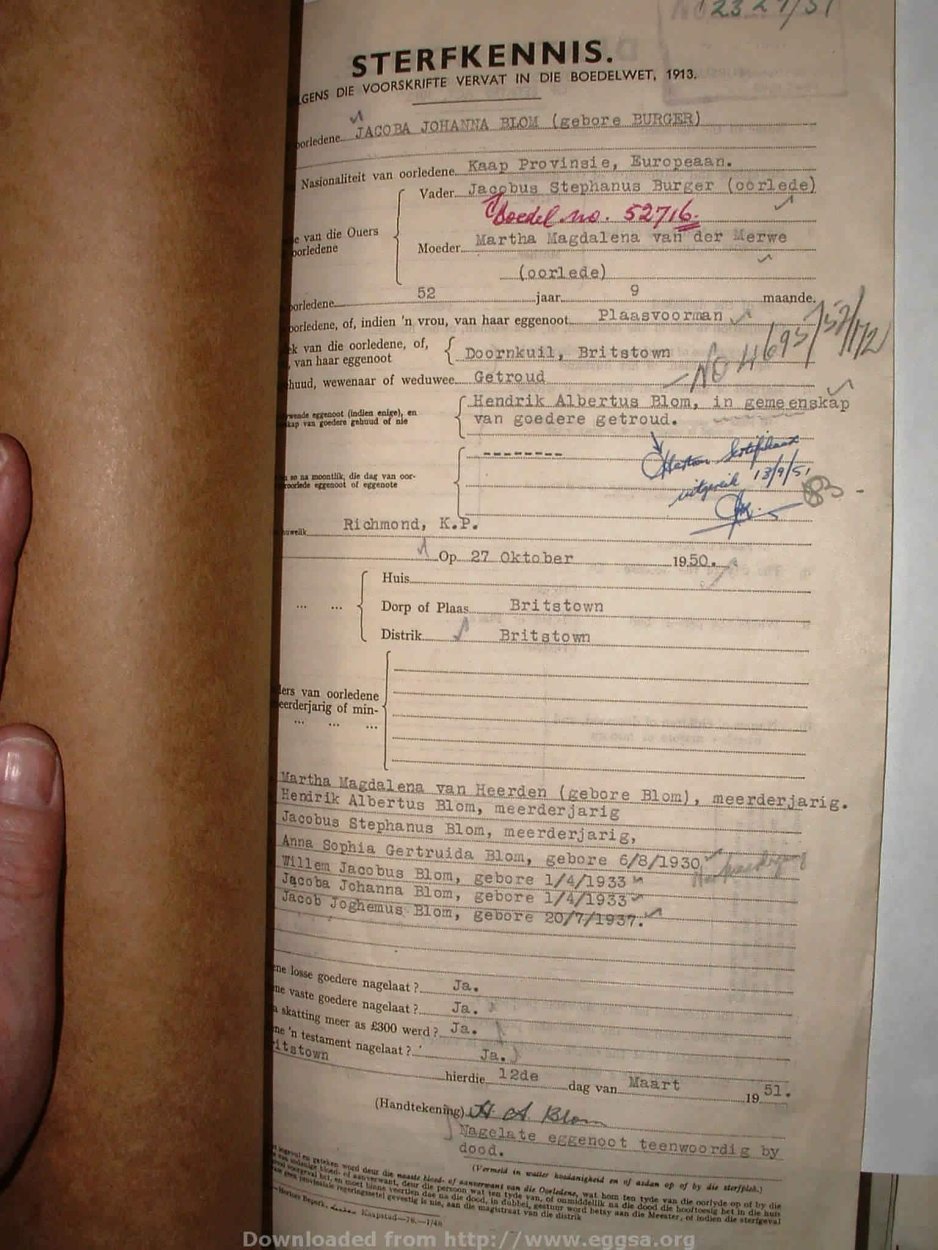 2327/51
STERFKENNIS.
LGENS DIE VOORSKRIFTE VERVAT IN DIE BOEDELWET, 1913.
oorledene JACOBA JOHANNA BLOM (gebore BURGER)
Nasionaliteit van oorledene Kaap Provinsie, Europeaan.
Vader Jacobus Stephanus Burger (oorlede)
Boedel no. 52716.
e van die Ouers
oorledene
Moeder Martha Magdalena van der Merwe
(oorlede)
oorledene 52 jaar 9 maande.
oorledene, of, indien 'n vrou, van haar eggenoot Plaasvoorman
ek van die oorledene, of,
, van haar eggenoot
Doornkuil, Britstown
No H695/57/1/12
huud, wewenaar of weduwee Getroud
wende eggenoot (indien enige), en
skap van goedere gehuud of nie
Hendrik Albertus Blom, in gemeenskap
van goedere getroud.
so na moontlik, die dag van oor-
oorlede eggenoot of eggenote
--------
uitgereik 13/9/51
huwelik Richmond, K.P.
Op 27 Oktober 1950.
Huis
... ...
Dorp of Plaas Britstown
Distrik Britstown
ders van oorledene
eerderjarig of min-
... ... ...
Martha Magdalena van Heerden (gebore Blom), meerderjarig.
Hendrik Albertus Blom, meerderjarig
Jacobus Stephanus Blom, meerderjarig,
Anna Sophia Gertruida Blom, gebore 6/8/1930
Willem Jacobus Blom, gebore 1/4/1933
Jacoba Johanna Blom, gebore 1/4/1933
Jacob Joghemus Blom, gebore 20/7/1937.
ne losse goedere nagelaat ? Ja.
ne vaste goedere nagelaat ? Ja.
a skatting meer as £300 werd ? Ja.
ne 'n testament nagelaat ? Ja.
ritstown hierdie 12de dag van Maart 1951.
(Handtekening) H. A. Blom
Nagelate eggenoot teenwoordig by
dood.
(Vermeld in watter hoedanigheid en of asdan op of by die sterfplek.)
Kaapstad—76.—1/48
Downloaded from http://www.eggsa.org